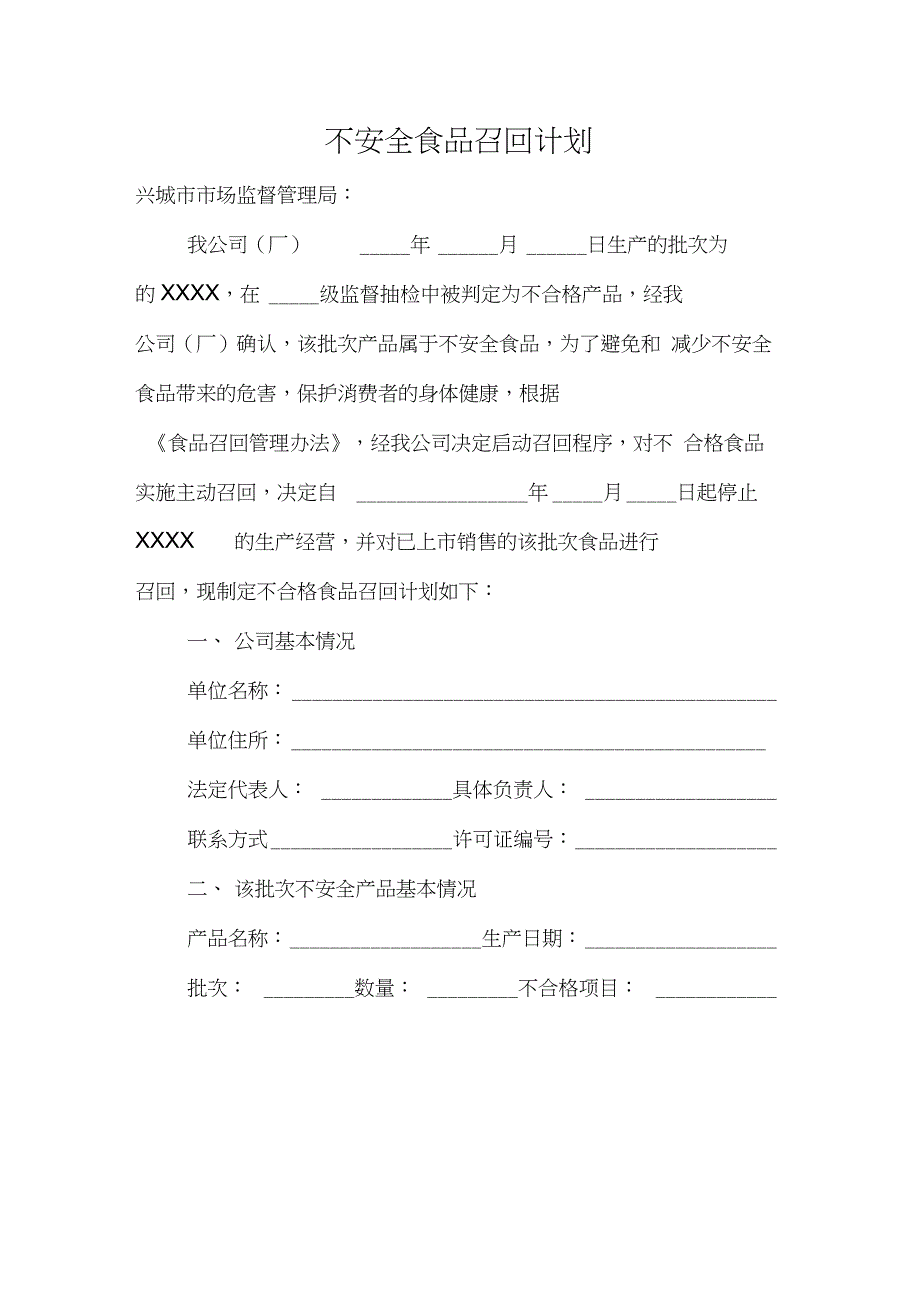 不安全食品召回计划
兴城市市场监督管理局：
我公司（厂） _____年 ______月 ______日生产的批次为
的 XXXX，在 _____级监督抽检中被判定为不合格产品，经我
公司（厂）确认，该批次产品属于不安全食品，为了避免和 减少不安全
食品带来的危害，保护消费者的身体健康，根据
《食品召回管理办法》，经我公司决定启动召回程序，对不 合格食品
实施主动召回，决定自 _________________年 _____月 _____日起停止
XXXX 的生产经营，并对已上市销售的该批次食品进行
召回，现制定不合格食品召回计划如下：
一、 公司基本情况
单位名称： ________________________________________________
单位住所： _______________________________________________
法定代表人： _____________具体负责人： ___________________
联系方式__________________许可证编号： ____________________
二、 该批次不安全产品基本情况
产品名称： ___________________生产日期： ___________________
批次： _________数量： _________不合格项目： ____________